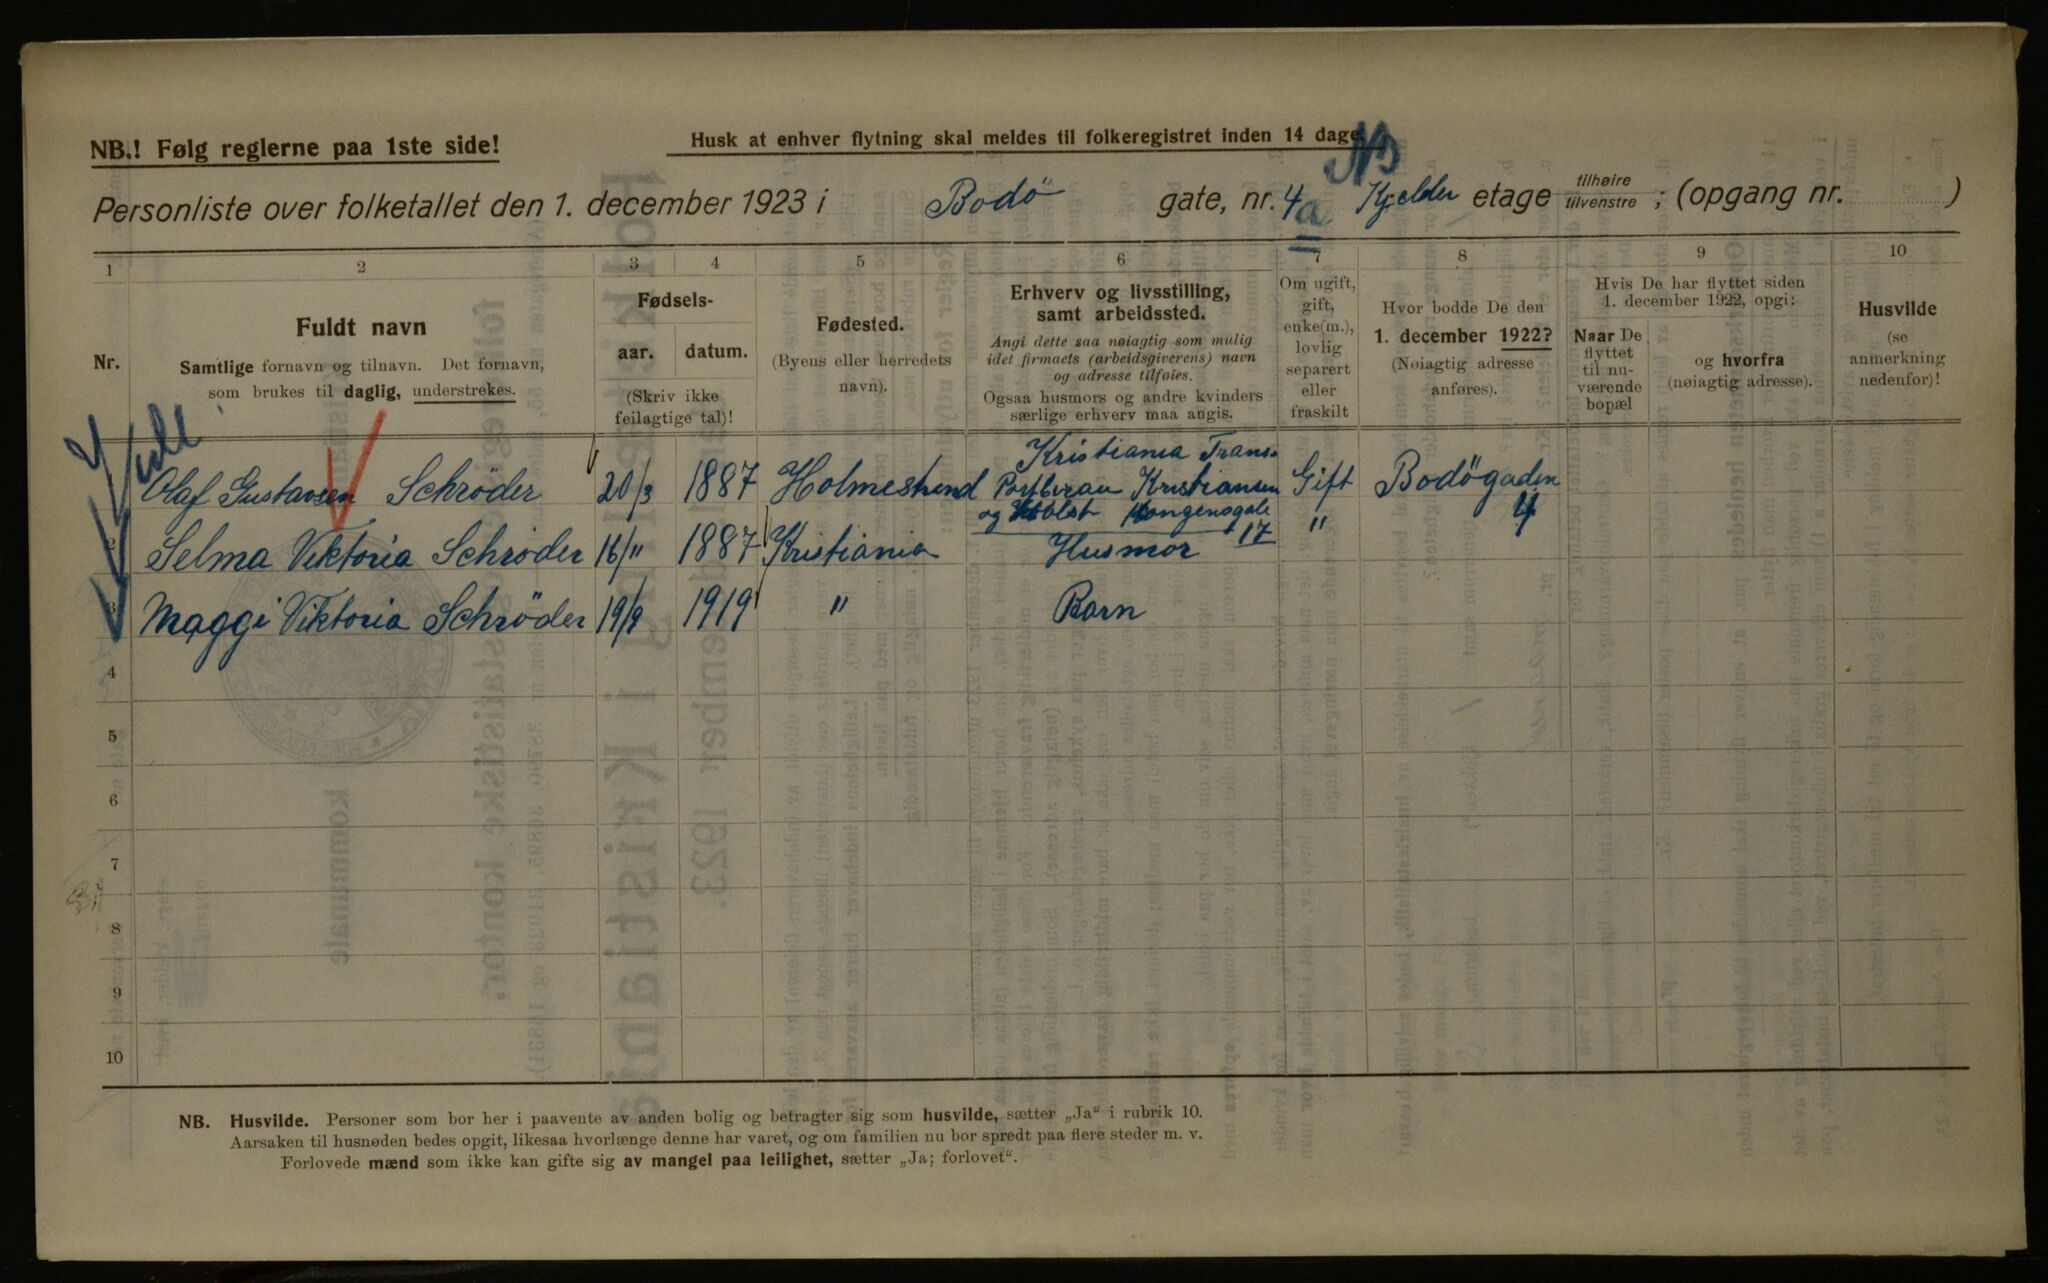 NB.! Følg reglerne paa 1ste side!
Husk at enhver flytning skal meldes til folkeregistret inden 14 dage.
NB
Personliste over folketallet den 1. december 1923 i Bodö gate, nr. 4a Kjelder etage tilhøire tilvenstre ; (opgang nr. )
1 2 3 4 5 6 7 8 9 10
Nr.
Fuldt navn
Samtlige fornavn og tilnavn. Det fornavn,
som brukes til daglig, understrekes.
Fødsels-
aar. datum.
(Skriv ikke
feilagtige tal)!
Fødested.
(Byens eller herredets
navn).
Erhverv og livsstilling,
samt arbeidssted.
Angi dette saa nøiagtig som mulig
idet firmaets (arbeidsgiverens) navn
og adresse tilføies.
Ogsaa husmors og andre kvinders
særlige erhverv maa angis.
Om ugift,
gift,
enke(m.),
lovlig
separert
eller
fraskilt
Hvor bodde De den
1. december 1922?
(Nøiagtig adresse
anføres).
Hvis De har flyttet siden
1. december 1922, opgi:
Naar De
flyttet
til nu-
værende
bopæl
og hvorfra
(nøiagtig adresse).
Husvilde
(se
anmerkning
nedenfor)!
Olaf Gustavsen Schrøder 20/3 1887 Holmestrend Kristiania Trans-
Portbirau Kristiansen
og Holst Kongensgate
17 Gift Bodögaden
4
2 Selma Viktoria Schröder 16/11 1887 Kristiania Husmor "
3 Maggi Viktoria Schröder 19/9 1919 " Barn
4
5
6
7
8
9
10
NB. Husvilde. Personer som bor her i paavente av anden bolig og betragter sig som husvilde, sætter „Ja“ i rubrik 10.
Aarsaken til husnøden bedes opgit, likesaa hvorlænge denne har varet, og om familien nu bor spredt paa flere steder m. v.
Forlovede mænd som ikke kan gifte sig av mangel paa leilighet, sætter „Ja; forlovet“.